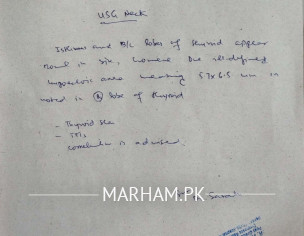 USG Neck
Isthmus and B/L lobes of thyroid appear
normal in size, however one ill-defined
hypoechoic area measuring 5.7x6.5 mm is
noted in (R) lobe of thyroid
- Thyroid
-
correlation is advised.
MARHAM.PK